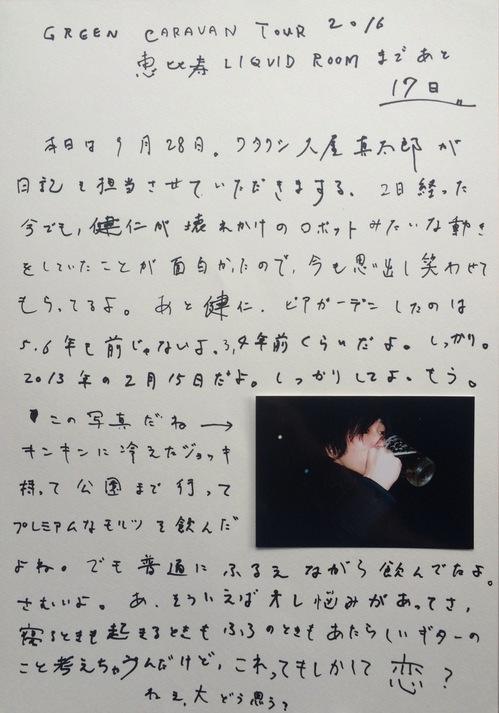 GREEN CARAVAN TOUR 2016
恵比寿 LIQUID ROOM まであと
17日
本日は9月28日。ワタクシ人屋真太郎が
日記を担当させていただきまする。2日経った
今でも、健仁が壊れかけのロボットみたいな動き
をしていたことが面白かったので、今も思い出し笑わせて
もらってるよ。あと健仁、ビアガーデンしたのは
5.6年も前じゃないよ。3,4年前くらいだよ。しっかり。
2013年の2月15日だよ。しっかりしてよ。もう。
この写真だね →
キンキンに冷えたジョッキ
持って公園まで行って
プレミアムなモルツを飲んだ
よね。でも普通にふるえながら飲んでたよ。
さむいよ。あ、そういえばオレ悩みがあってさ、
寝るときも起きるときもふろのときもあたらしいギターの
こと考えちゃうんだけど、これってもしかして恋?
ねえ、大どう思う?